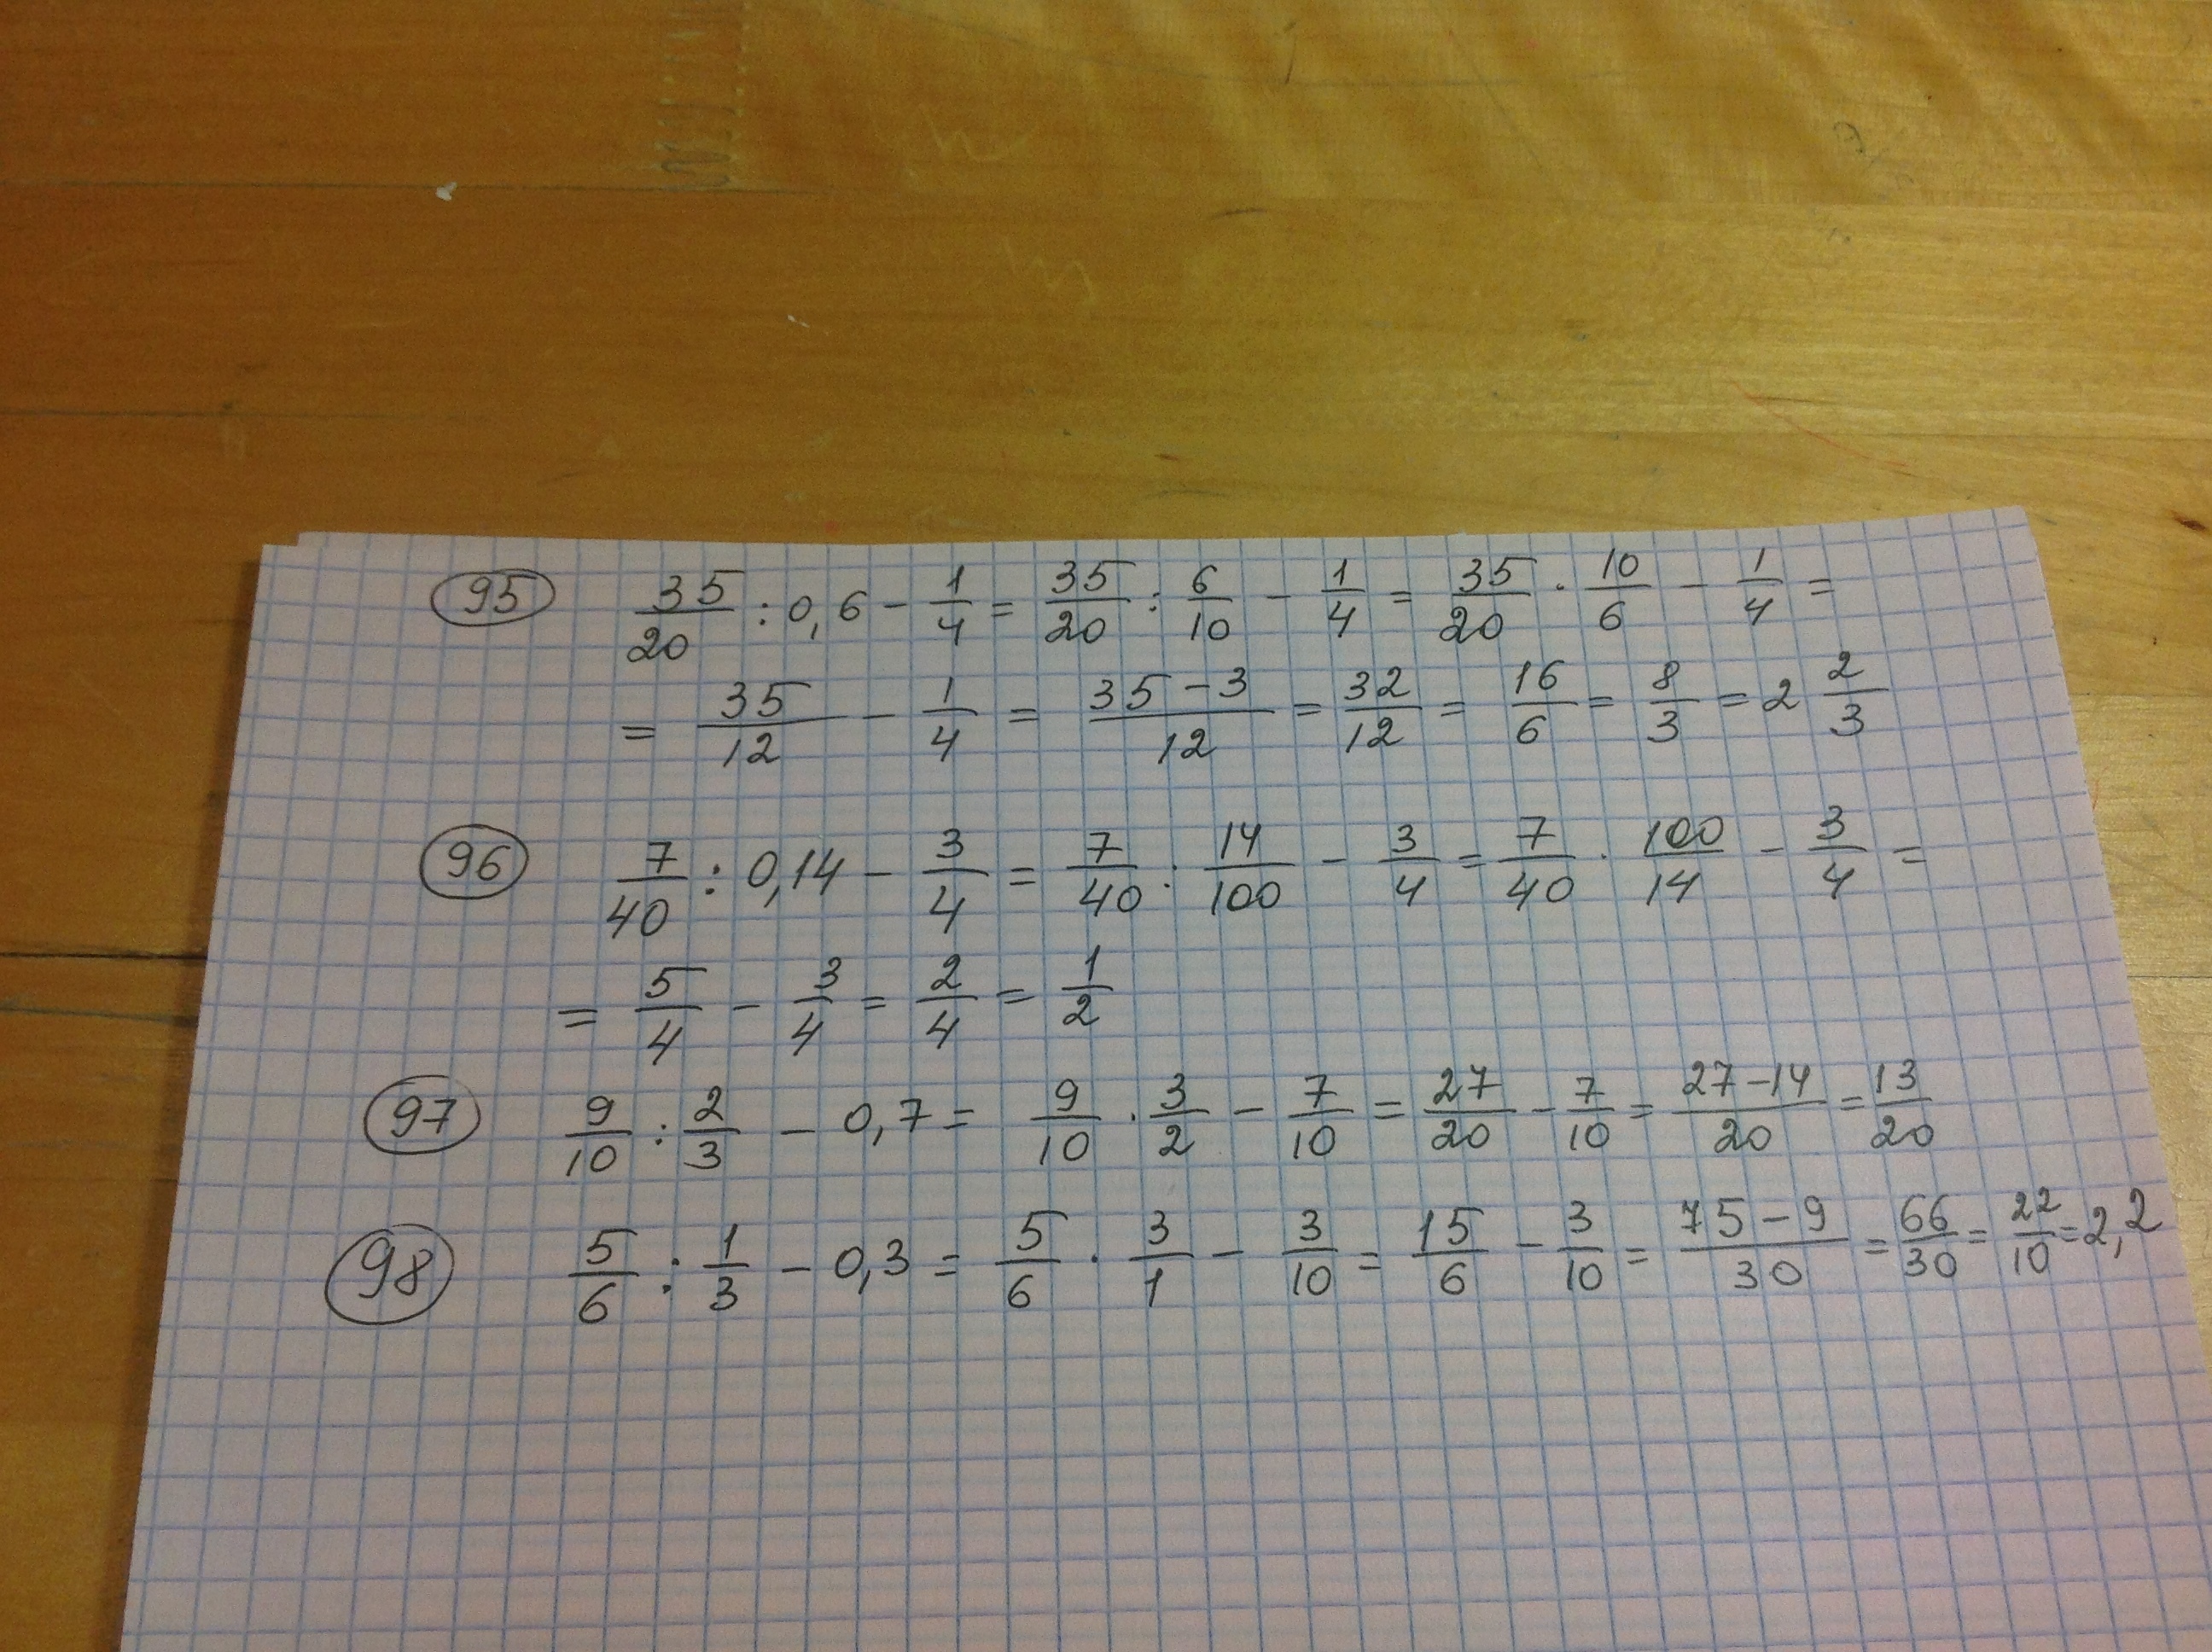 95 35/20 : 0,6 - 1/4 = 35/20 : 6/10 - 1/4 = 35/20 · 10/6 - 1/4 =
= 35/12 - 1/4 = 35-3/12 = 32/12 = 16/6 = 8/3 = 2 2/3
96 7/40 : 0,14 - 3/4 = 7/40 : 14/100 - 3/4 = 7/40 · 100/14 - 3/4 =
= 5/4 - 3/4 = 2/4 = 1/2
97 9/10 : 2/3 - 0,7 = 9/10 · 3/2 - 7/10 = 27/20 - 7/10 = 27-14/20 = 13/20
98 5/6 : 1/3 - 0,3 = 5/6 · 3/1 - 3/10 = 15/6 - 3/10 = 75-9/30 = 66/30 = 22/10 = 2,2